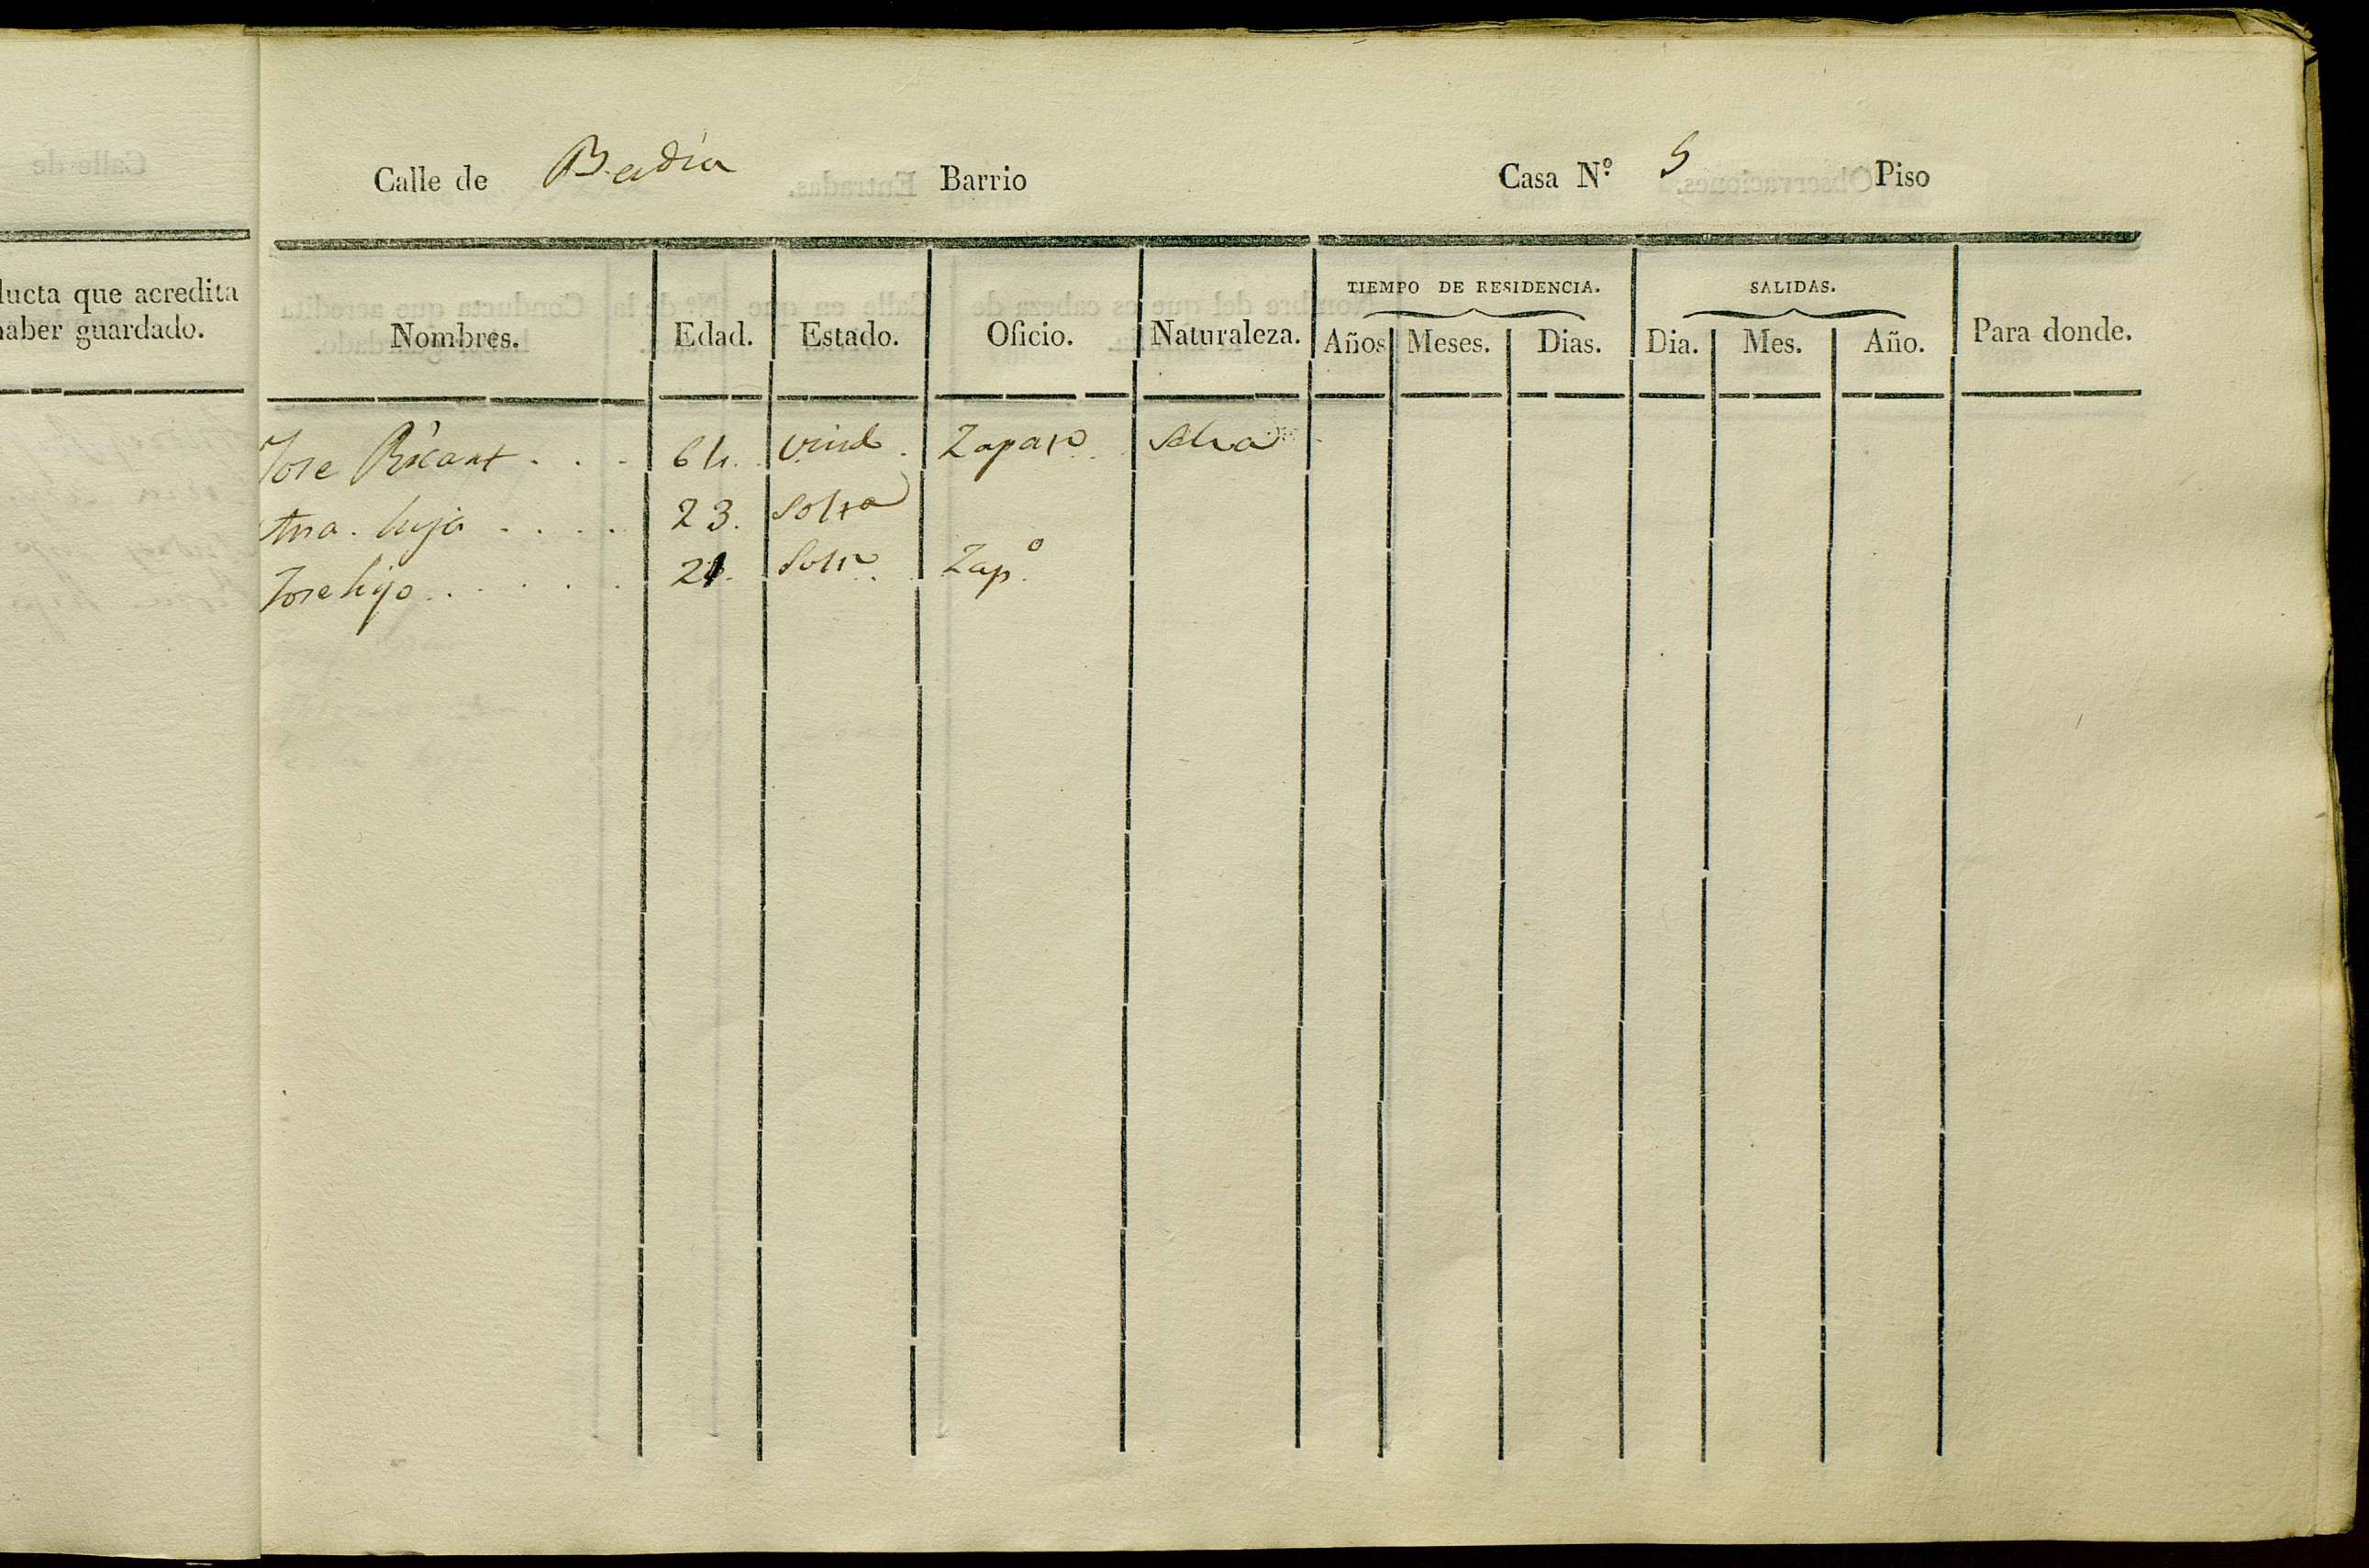 ducta que acredita
haber guardado.
Calle de Badia Barrio Casa N.º 5 Piso
TIEMPO DE RESIDENCIA. SALIDAS.
Nombres. Edad. Estado. Oficio. Naturaleza. Años Meses. Dias. Dia. Mes. Año. Para donde.
Jose Ricart . . . 64. viud. Zapatero Selva
Ana. hija . . . . 23. Soltra
Jose hijo . . . . . 21. Soltro Zap.º